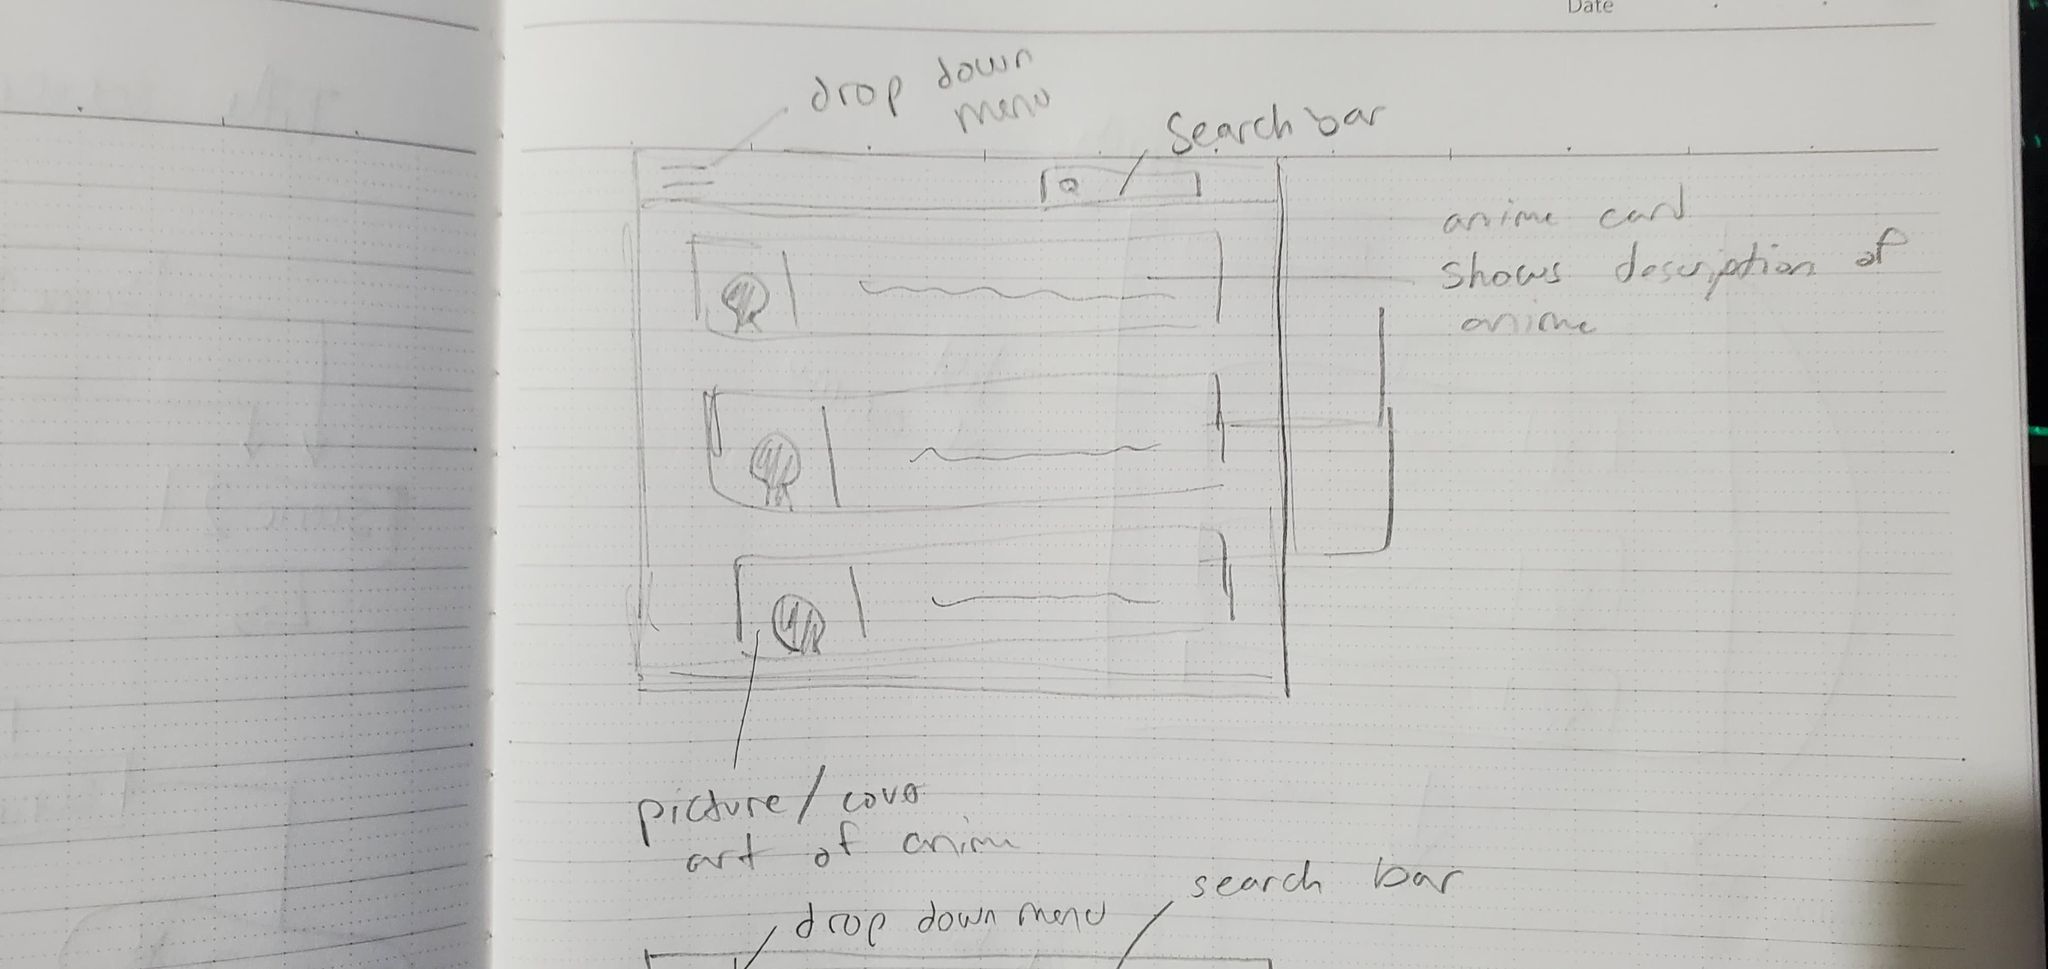 Date
drop down
menu
Search bar
anime card
shows description of
anime
picture/cover
art of anime
search bar
drop down menu